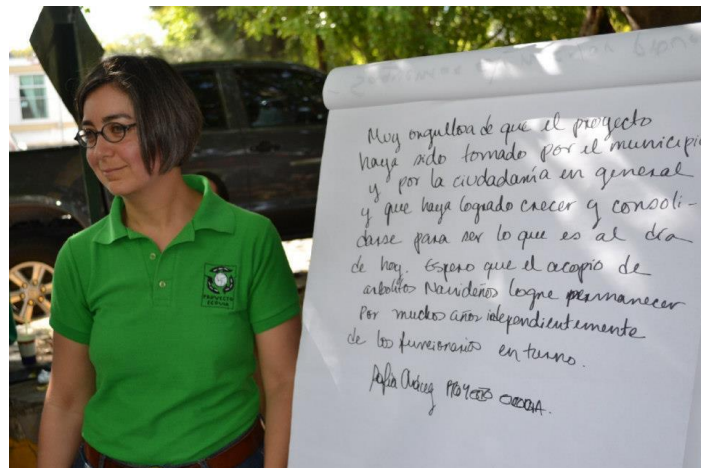 Muy orgullosa de que el proyecto
haya sido tomado por el municipio
y por la ciudadanía en general
y que haya logrado crecer y consoli-
darse para ser lo que es al dia
de hoy. Espero que el acopio de
arbolitos Navideños logre permanecer
por muchos años independientemente
de los funcionarios en turno.
PROYECTO
PROYECTO